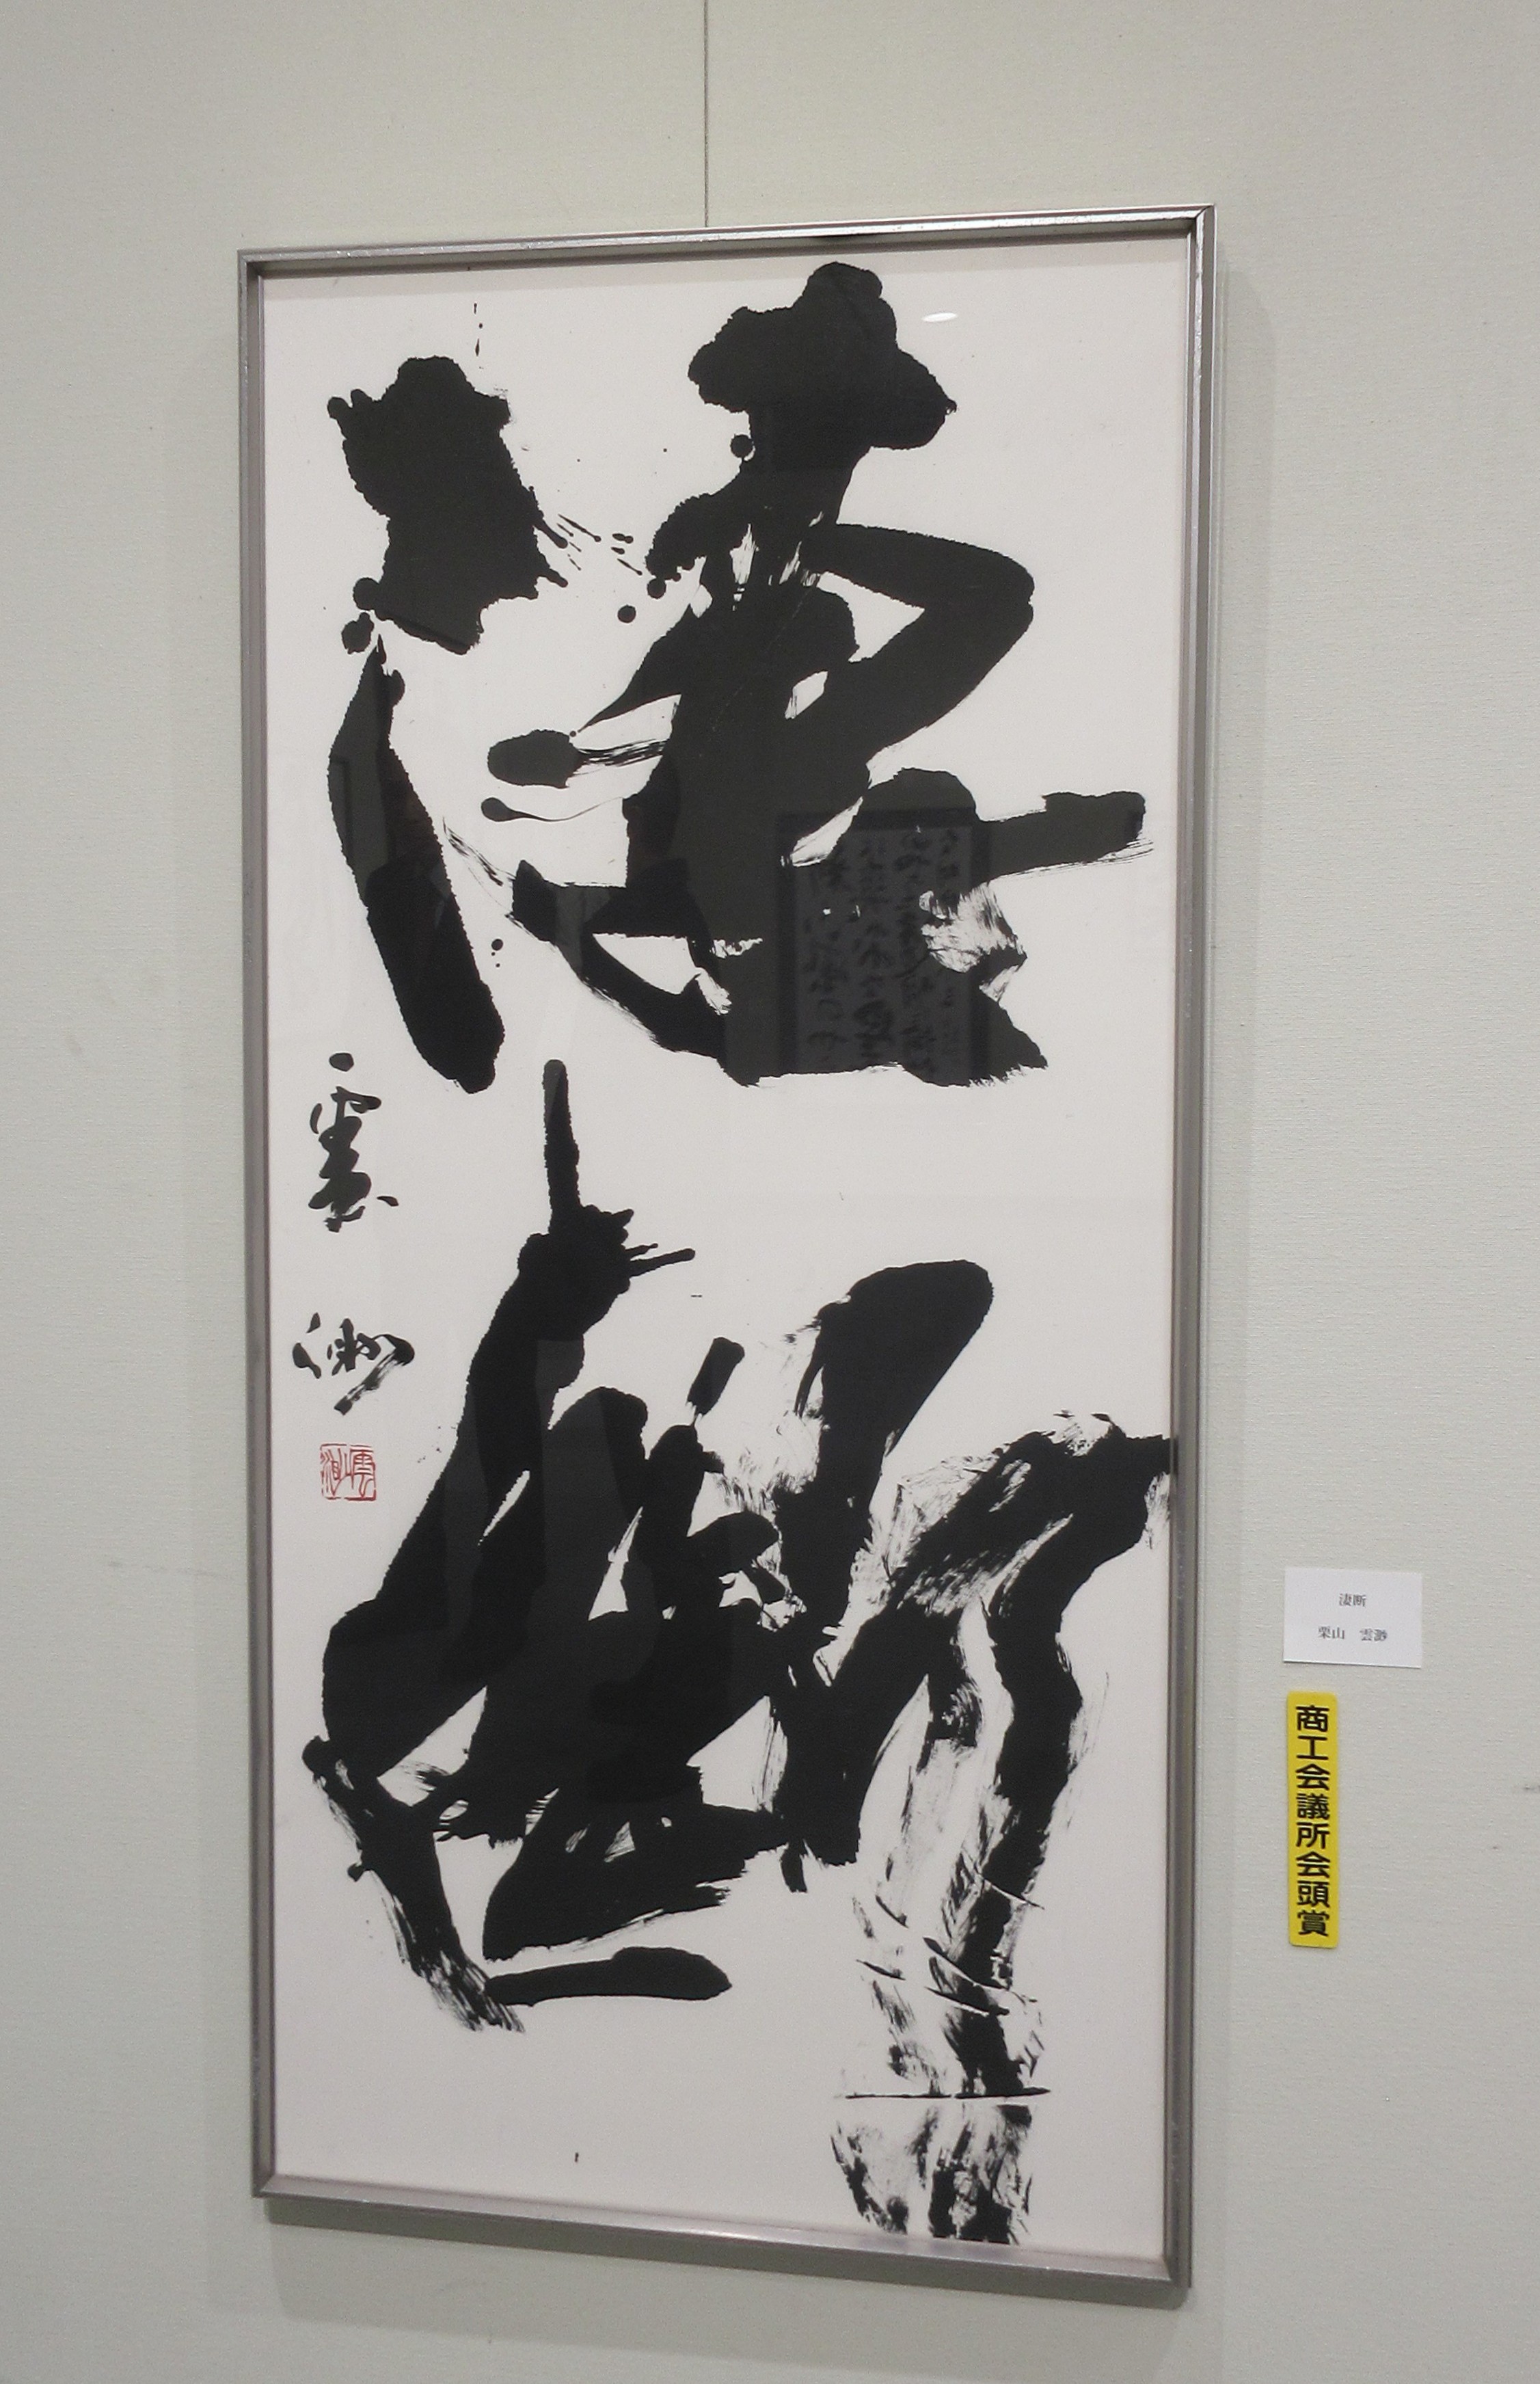 凄断
雲渺
凄断
栗山 雲渺
商工会議所会頭賞